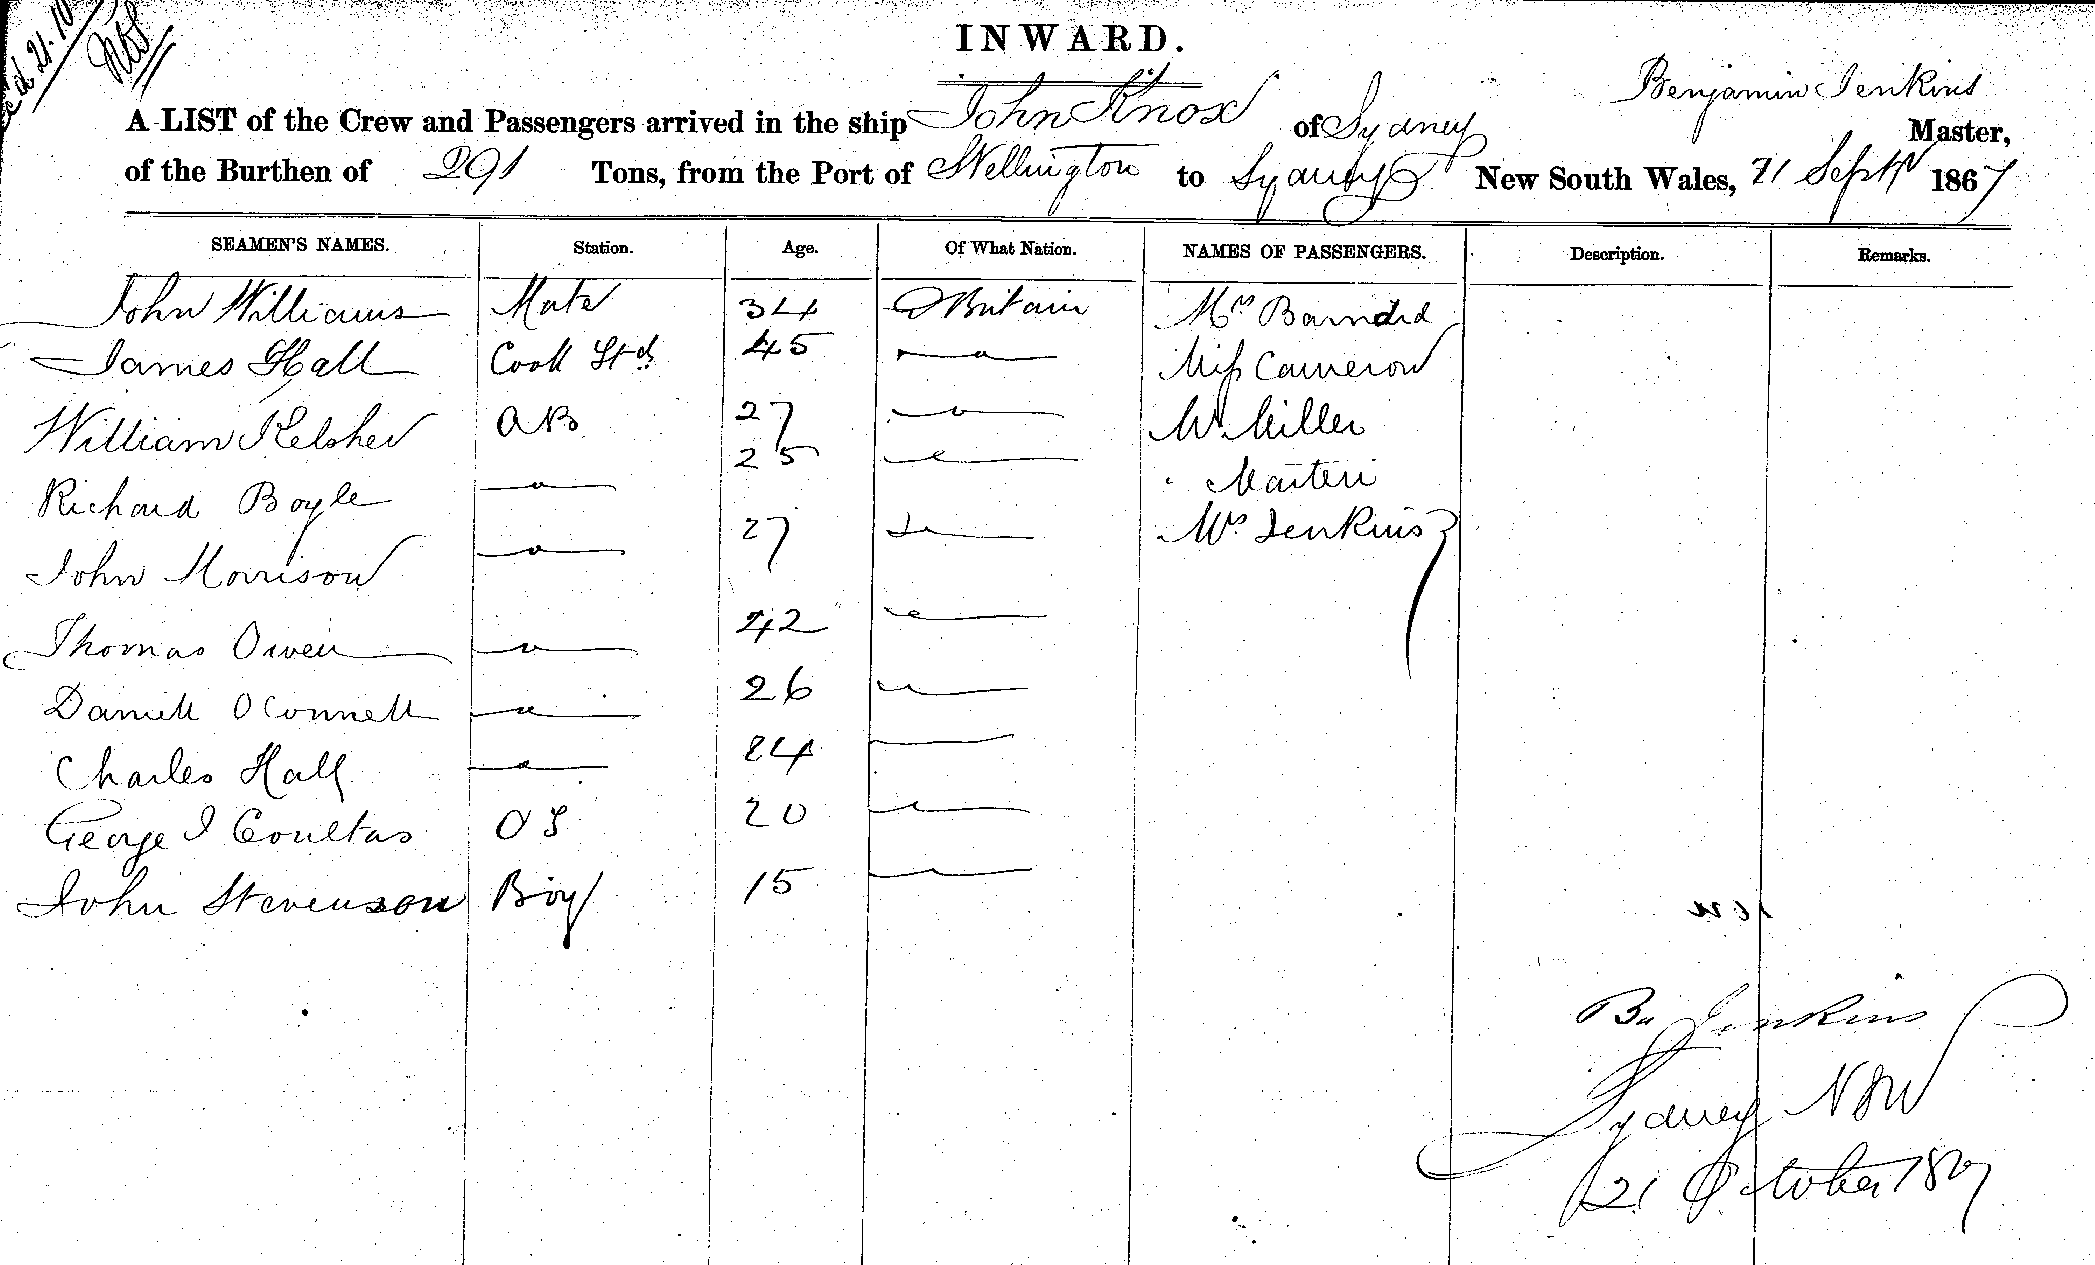 21. 10
INWARD.
Benjamin Jenkins
A LIST of the Crew and Passengers arrived in the ship John Knox of Sydney Master,
of the Burthen of 291 Tons, from the Port of Wellington to Sydney New South Wales, 21 Septr 1867
SEAMEN'S NAMES. Station. Age. Of What Nation. NAMES OF PASSENGERS. Description. Remarks.
John Williams Mate 34 Britain Mrs
James Hall Cook Std 45 Miss Cameron
William Kelsher AB 27 Mr Miller
Richard Boyle 25
John Morrison 27 Mrs Jenkins
Thomas Owen 42
Daniell OConnell 26
Charles Hall 24
George J Coultas OS 20
John Stevenson Boy 15
Bn Jenkins
Sydney NSW
21 October 1867